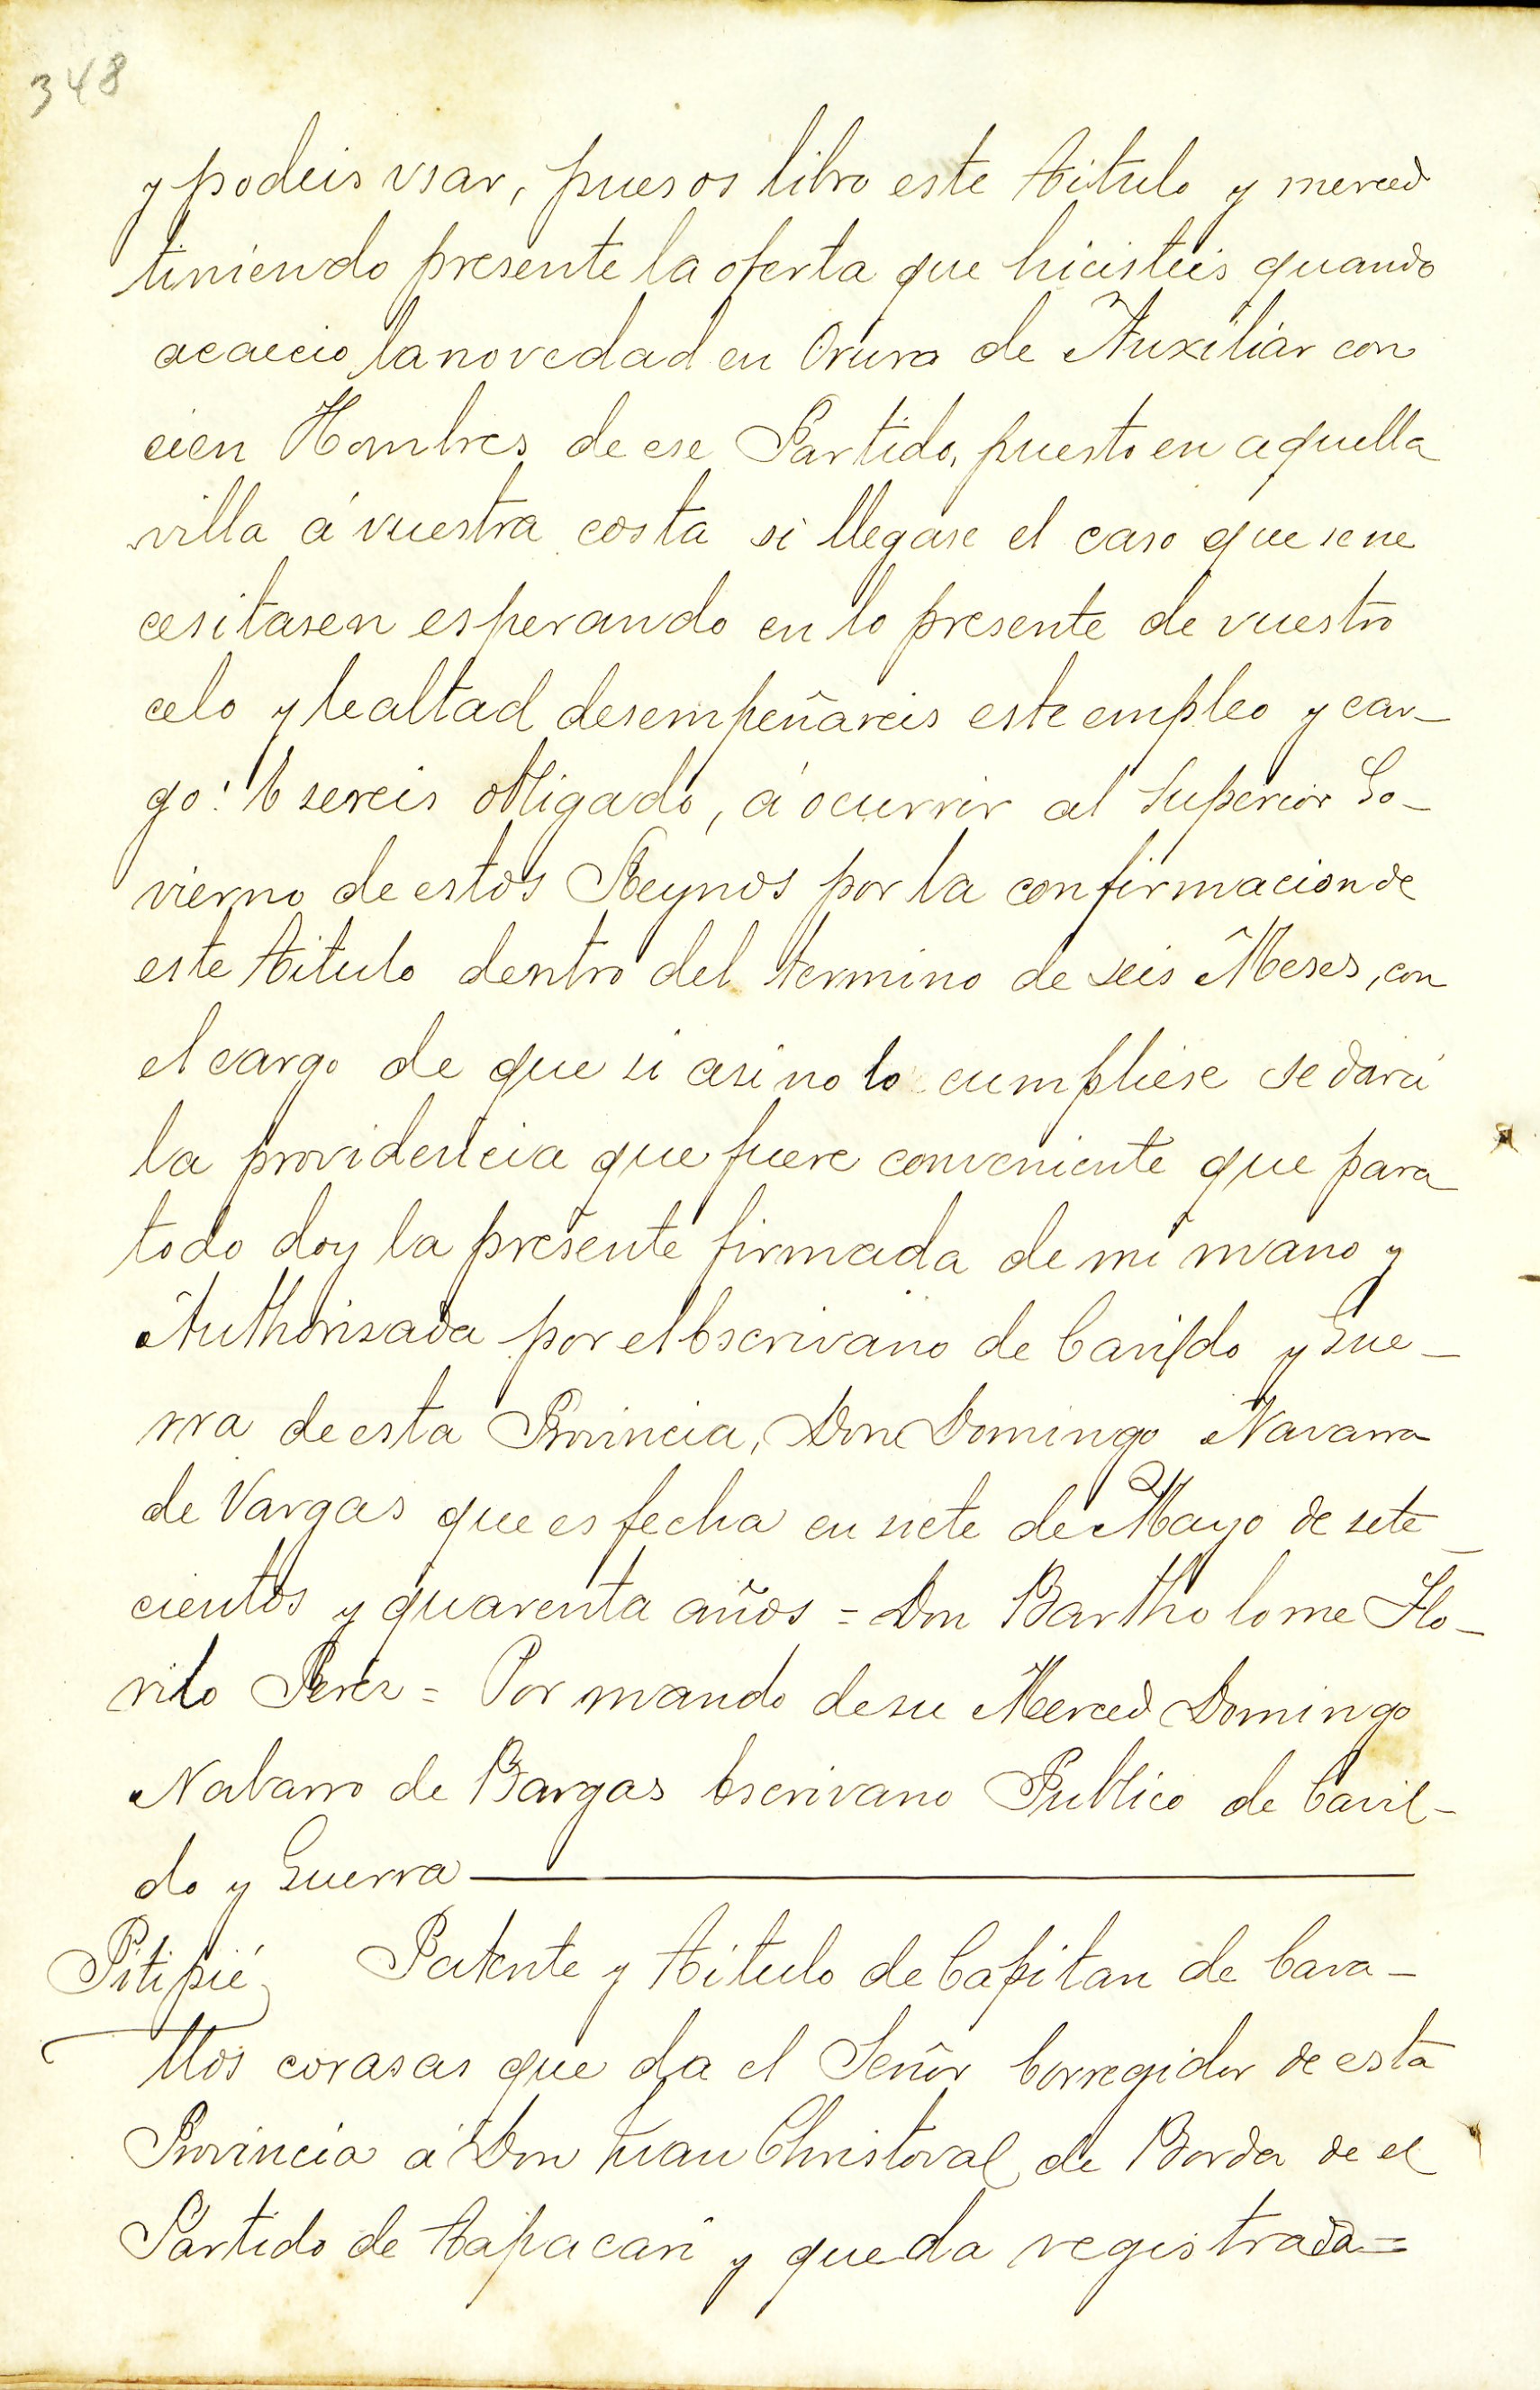 348
y podeis vsar, pues os libro este titulo y merced
tiniendo presente la oferta que hicisteis quando
acaecio la novedad en Oruro de Auxiliar con
cien Hombres de ese Partido, puesto en aquella
villa á vuestra costa si llegase el caso que se ne
cesitasen esperando en lo presente de vuestro
celo y lealtad desempeñareis este empleo y car-
go: E sereis obligado, á ocurrir al Superior Go-
vierno de estos Reynos por la confirmacion de
este titulo dentro del termino de seis Meses, con
el cargo de que si asi no lo cumpliese se dará
la providencia que fuere conveniente que para
todo doy la presente firmada de mi mano y
Authorisada por el Escrivano de Cavildo y Gue-
rra de esta Provincia, Don Domingo Navarro
de Vargas que es fecha en siete de Mayo de sete-
cientos y quarenta años = Don Bartholome Flo-
rilo Perez = Por mando de su Merced Domingo
Nabarro de Bargas Escrivano Publico de Cavil-
do y Guerra
Pitipié Patente y titulo de Capitan de Cava-
llos corasas que da el Señor Corregidor de esta
Provincia á Don Juan Christoval de Borda de el
Partido de Tapacari y queda registrada=